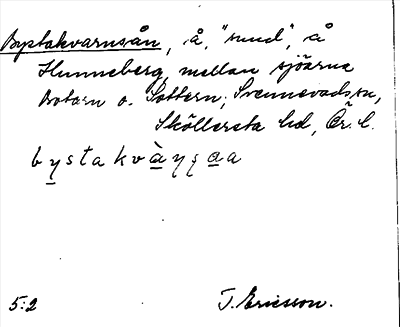 Bystakvarnsån, å, "sund", å
Hunneberg, mellan sjöarna
Botorn o. Sottern, Svennevads sn,
Sköllersta hd, Ör. l.
bystakvàṇṣa̲a
5:2 T. Ericsson.